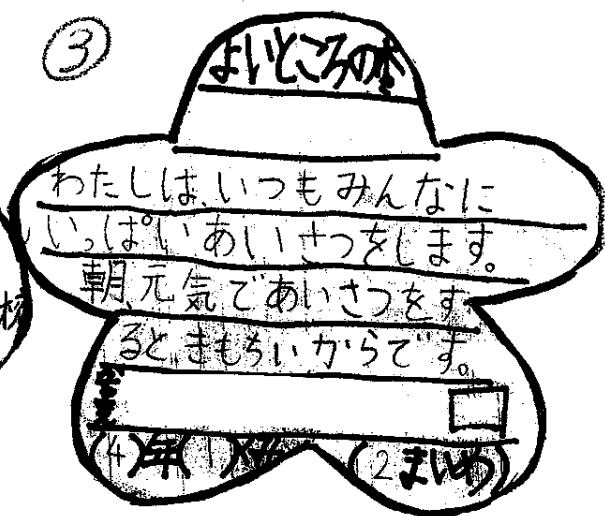 ③
よいところの木
わたしは、いつもみんなに
いっぱいあいさつをします。
朝、元気であいさつをす
るときもちいからです。
(4)年(1)組 (2まいめ)